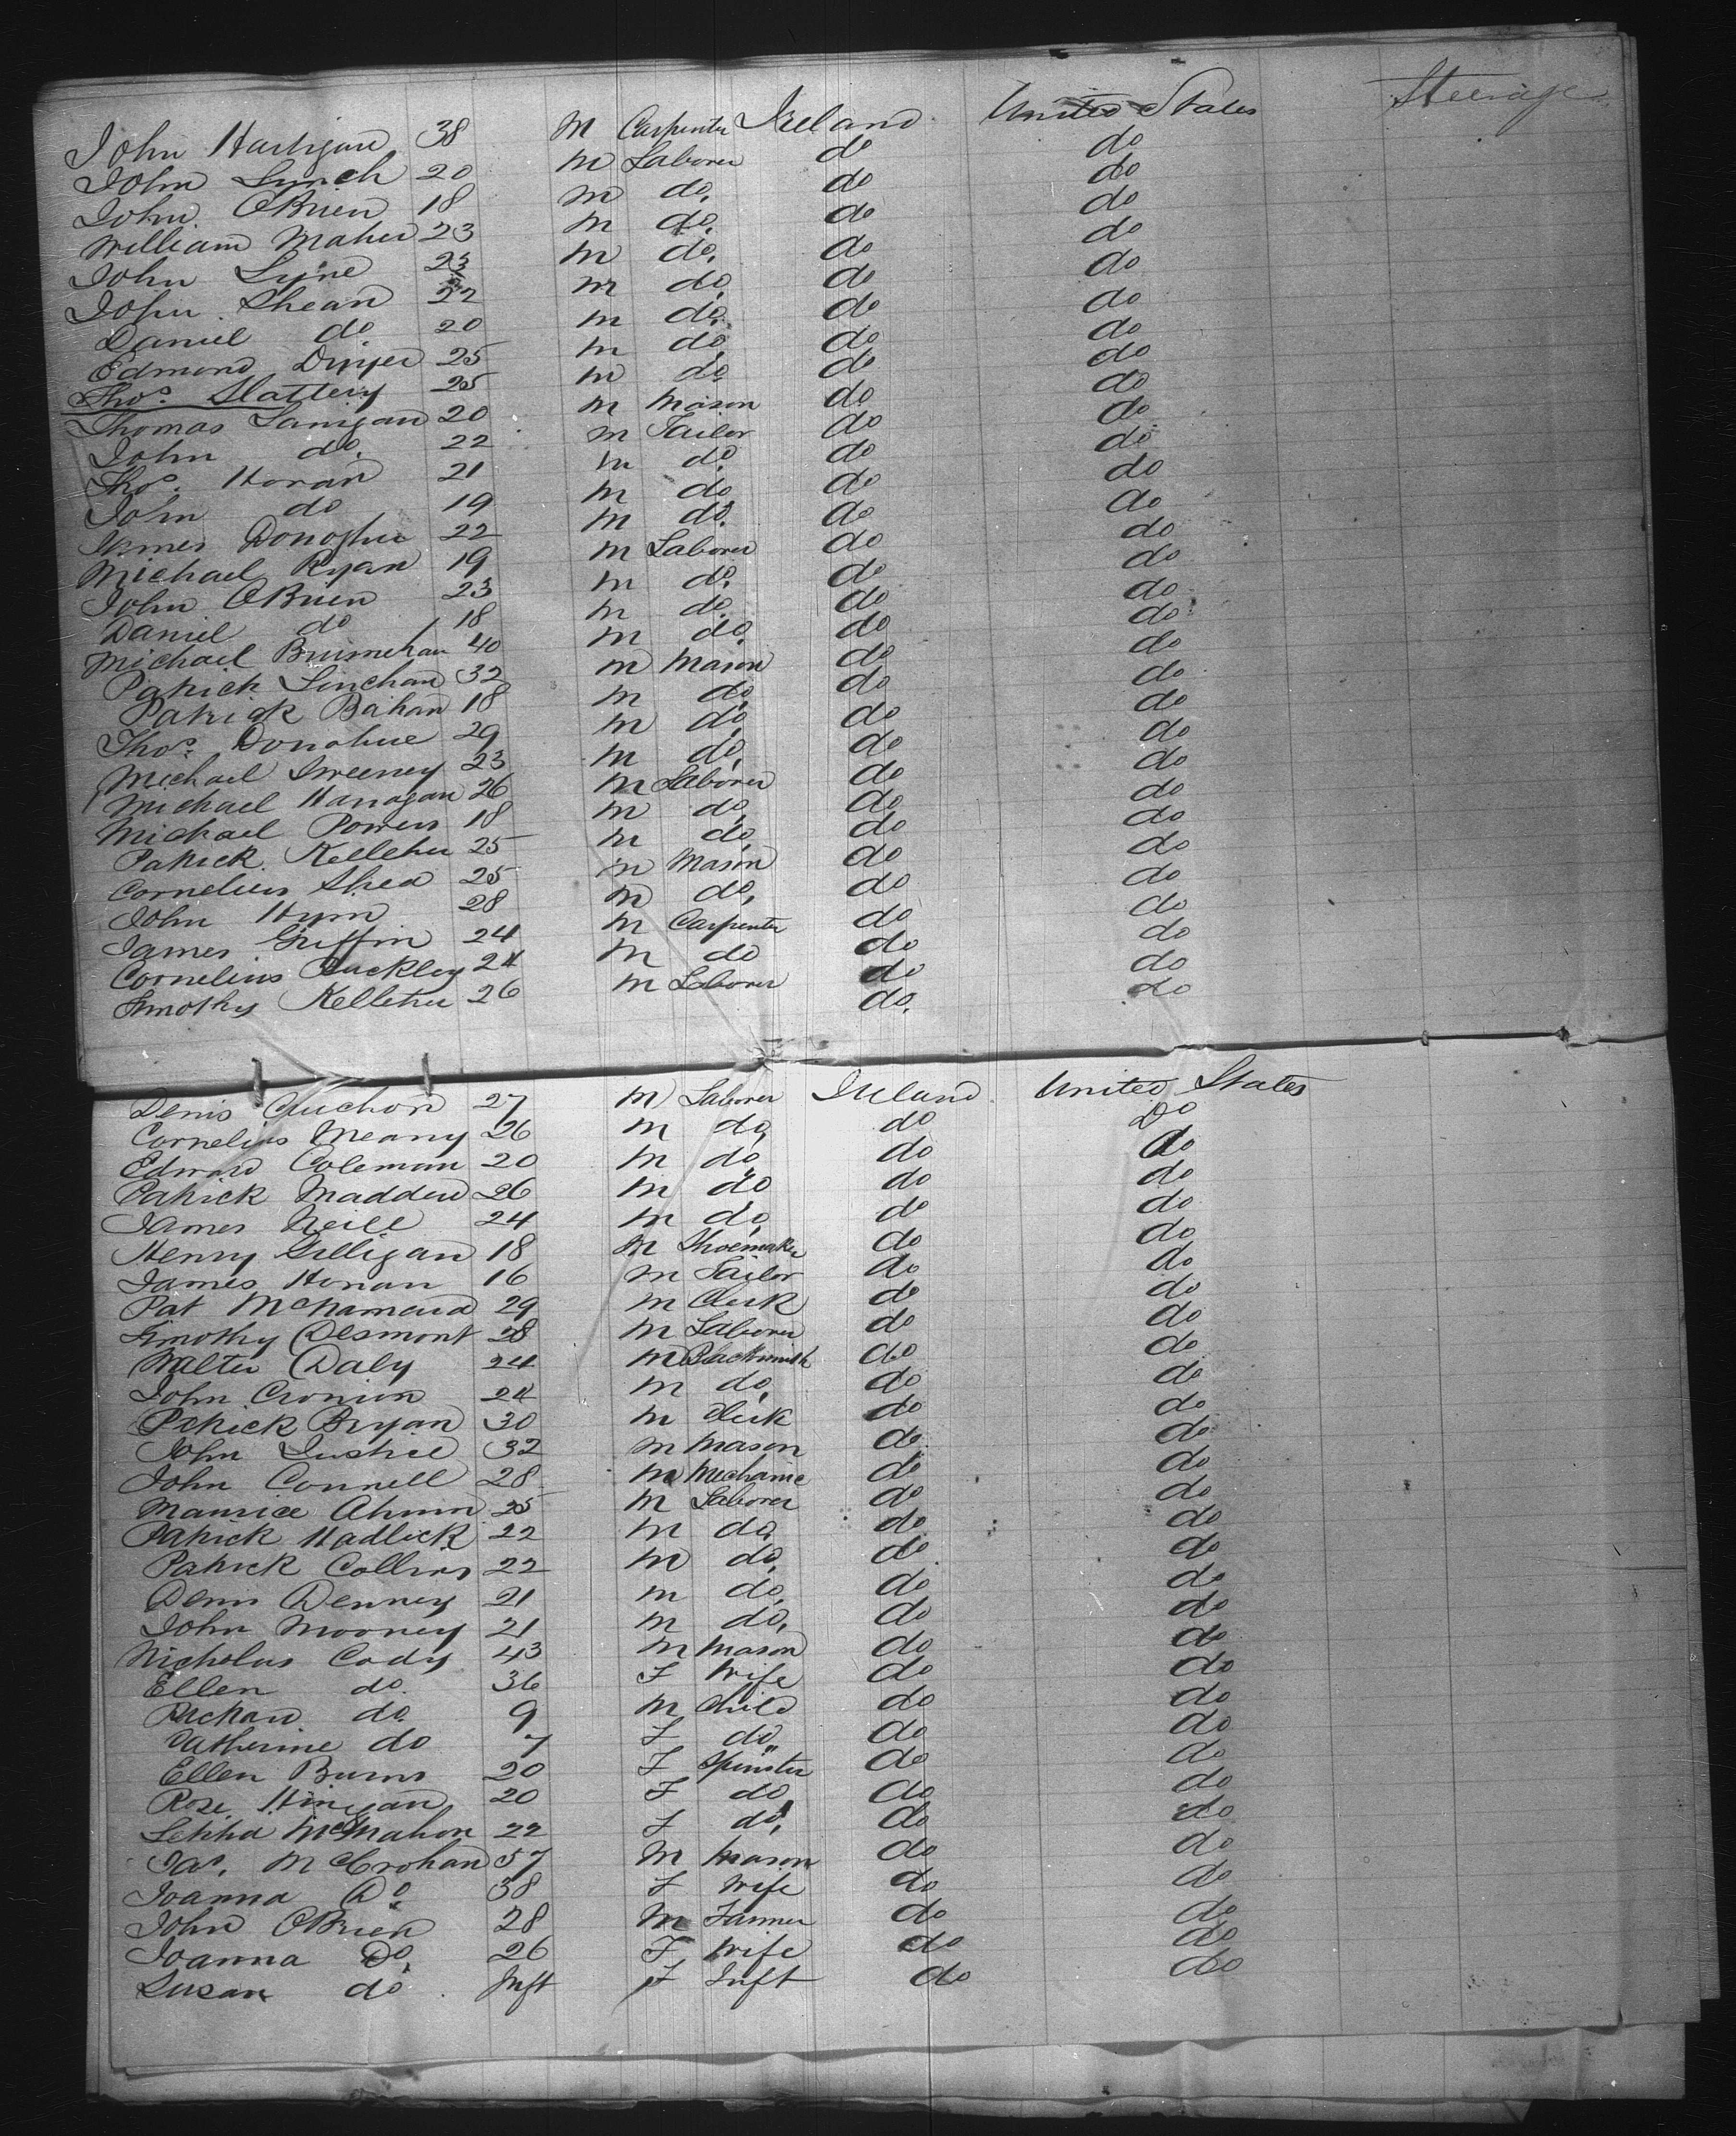 John Hartigan 38 M Carpenter Ireland United States Steerage
John Lynch 20 M Laborer do do
John OBrien 18 M do. do do
William Maher 23 M do. do do
John Lyne 23 M do. do do
John Shean 22 M do. do do
Daniel do 20 M do. do do
Edmond Dwyer 25 M do. do do
Thos. Slattery 25 M do. do do
Thomas Lanigan 20 M Mason do do
John do. 22 M Tailor do do
Thos. Horan 21 M do. do do
John do 19 M do do do
James Donoghue 22 M do. do do
Michael Ryan 19 M Laborer do do
John OBrien 23 M do. do do
Daniel do 18 M do. do do
Michael 40 M do. do do
Patrick Linehan 32 M Mason do do
Patrick Bahan 18 M do. do do
Thos. Donohue 29 M do. do do
Michael Sweeney 23 M do. do do
Michael Hanagan 26 M Laborer do do
Michael Powers 18 M do. do do
Patrick Kelleher 25 M do. do do
Cornelius Shea 25 M Mason do do
John 28 M do. do do
James Griffin 24 M Carpenter do do
Cornelius Buckley 24 M do do do
Timothy Kelleher 26 M Laborer do. do
Denis 27 M Laborer Ireland United States
Cornelius Meany 26 M do. do Do
Edward Coleman 20 M do. do do
Patrick Madden 26 M do do do
James Neill 24 M do. do do
Henry Gilligan 18 M Shoemaker do do
James Honan 16 M Tailor do do
Pat McNamara 29 M Clerk do do
Timothy Desmont 28 M Laborer do do
Walter Daly 24 M Blacksmith do do
John Cronion 24 M do. do do
Patrick Bryan 30 M Clerk do do
John Justice 32 M Mason do do
John Connell 28 M Mechanic do do
Maurice Ahern 25 M Laborer do do
Patrick Hadlick 22 M do. do do
Patrick Collins 22 M do. do do
Denis Denney 21 M do. do do
John Mooney 21 M do. do do
Nicholas Cody 43 M Mason do do
Ellen do. 36 F Wife do do
Richard do. 9 M Child do do
Catherine do 7 F do. do do
Ellen Burns 20 F Spinster do do
Rose Hinegan 20 F do. do do
McMahon 22 F do. do do
Jas. McCrohan 37 M Mason do do
Joanna Do. 38 F Wife do do
John OBrien 28 M Farmer do do
Joanna Do. 26 F Wife do do
Susan do. Inft F Inft do do